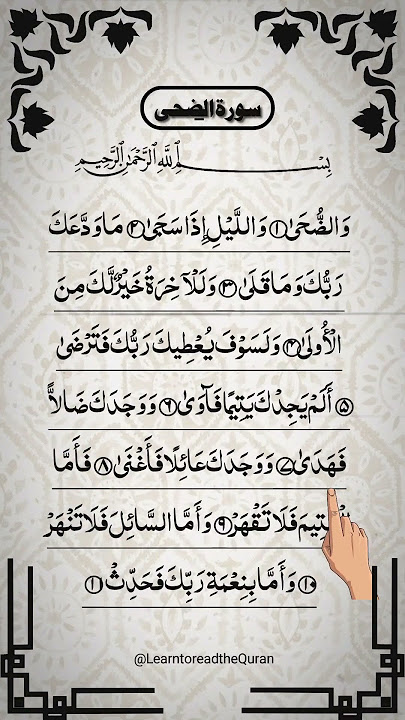 سورة الضحى
بِسْمِ اللَّهِ الرَّحْمَٰنِ الرَّحِيمِ
وَالضُّحَىٰ ١ وَاللَّيْلِ إِذَا سَجَىٰ ٢ مَا وَدَّعَكَ
رَبُّكَ وَمَا قَلَىٰ ٣ وَلَلْآخِرَةُ خَيْرٌ لَّكَ مِنَ
الْأُولَىٰ ٤ وَلَسَوْفَ يُعْطِيكَ رَبُّكَ فَتَرْضَىٰ
٥ أَلَمْ يَجِدْكَ يَتِيمًا فَآوَىٰ ٦ وَوَجَدَكَ ضَالًّا
فَهَدَىٰ ٧ وَوَجَدَكَ عَائِلًا فَأَغْنَىٰ ٨ فَأَمَّا
الْيَتِيمَ فَلَا تَقْهَرْ ٩ وَأَمَّا السَّائِلَ فَلَا تَنْهَرْ
١٠ وَأَمَّا بِنِعْمَةِ رَبِّكَ فَحَدِّثْ ١
@LearntoreadtheQuran